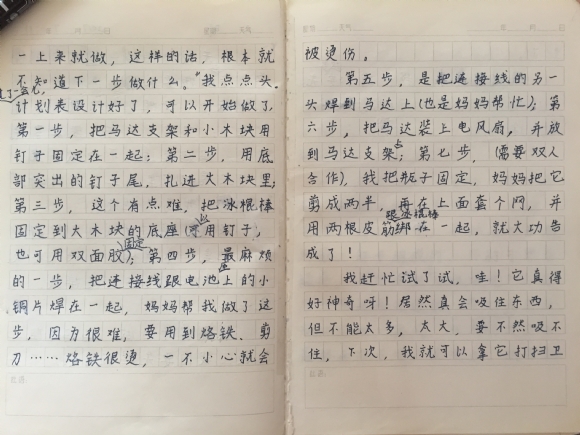 一上来就做，这样的话，根本就
不知道下一步做什么。"我点点头。
过了一会儿，
计划表设计好了，可以开始做了。
第一步，把马达支架和小木块用
钉子固定在一起；第二步，用底
部突出的钉子尾，扎进大木块里；
第三步，这个有点难，把冰棍棒
固定到大木块的底座（可用钉子，
也可用双面胶）；第四步，最麻烦
固定
的一步，把连接线跟电池上的小
铜片焊在一起，妈妈帮我做了这
步，因为很难，要用到烙铁、剪
刀……烙铁很烫，一不小心就会
被烫伤。
第五步，是把连接线的另一
头焊到马达上（也是妈妈帮忙）；第
六步，把马达装上电风扇，并放
到马达支架上；第七步，（需要双人
合作），我把瓶子固定，妈妈把它
剪成两半，再在上面套个网，并
跟冰棍棒
用两根皮筋绑在一起，就大功告
成了！
我赶忙试了试，哇！它真得
好神奇呀！居然真会吸住东西，
但不能太多，太大，要不然吸不
住，下次，我就可以拿它打扫卫